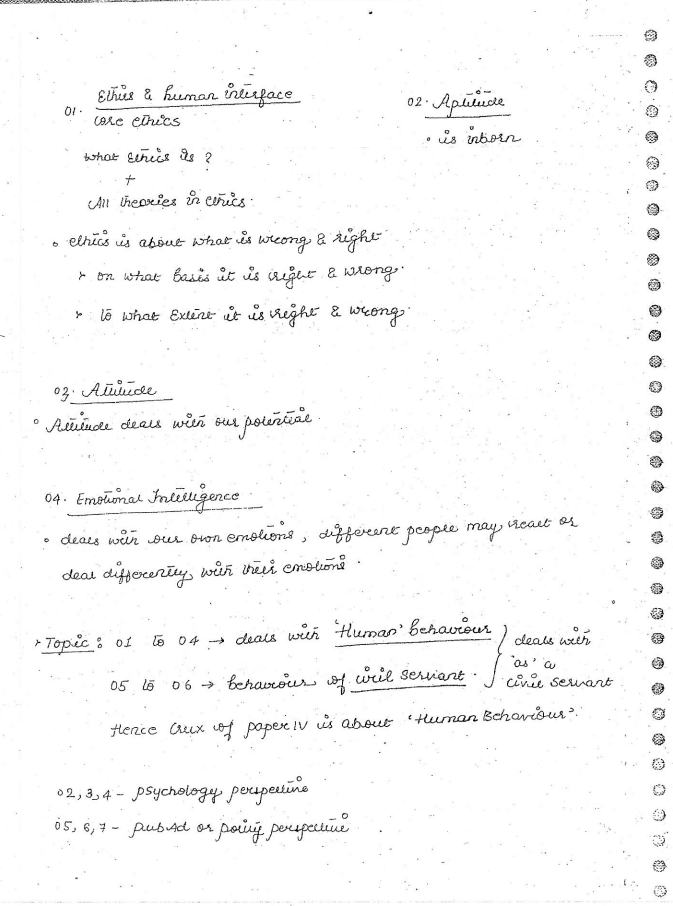 01. Ethics & human interface
core ethics
What Ethics is ?
+
All theories in ethics.
02. Aptitude
• is inborn
• ethics is about what is wrong & right
> on what basis it is right & wrong.
> to what Extent it is right & wrong.
03. Attitude
• Attitude deals with our potential.
04. Emotional Intelligence
• deals with our own emotions, different people may react or
deal differently, with their emotions.
> Topic : 01 to 04 → deals with 'Human' behaviour
05 to 06 → behaviour of civil servant.
} deals with
'as' a
civil servant
Hence Crux of paper IV is about 'Human Behaviour'.
02, 3, 4 - psychology perspective
05, 6, 7 - pubAd or policy perspective